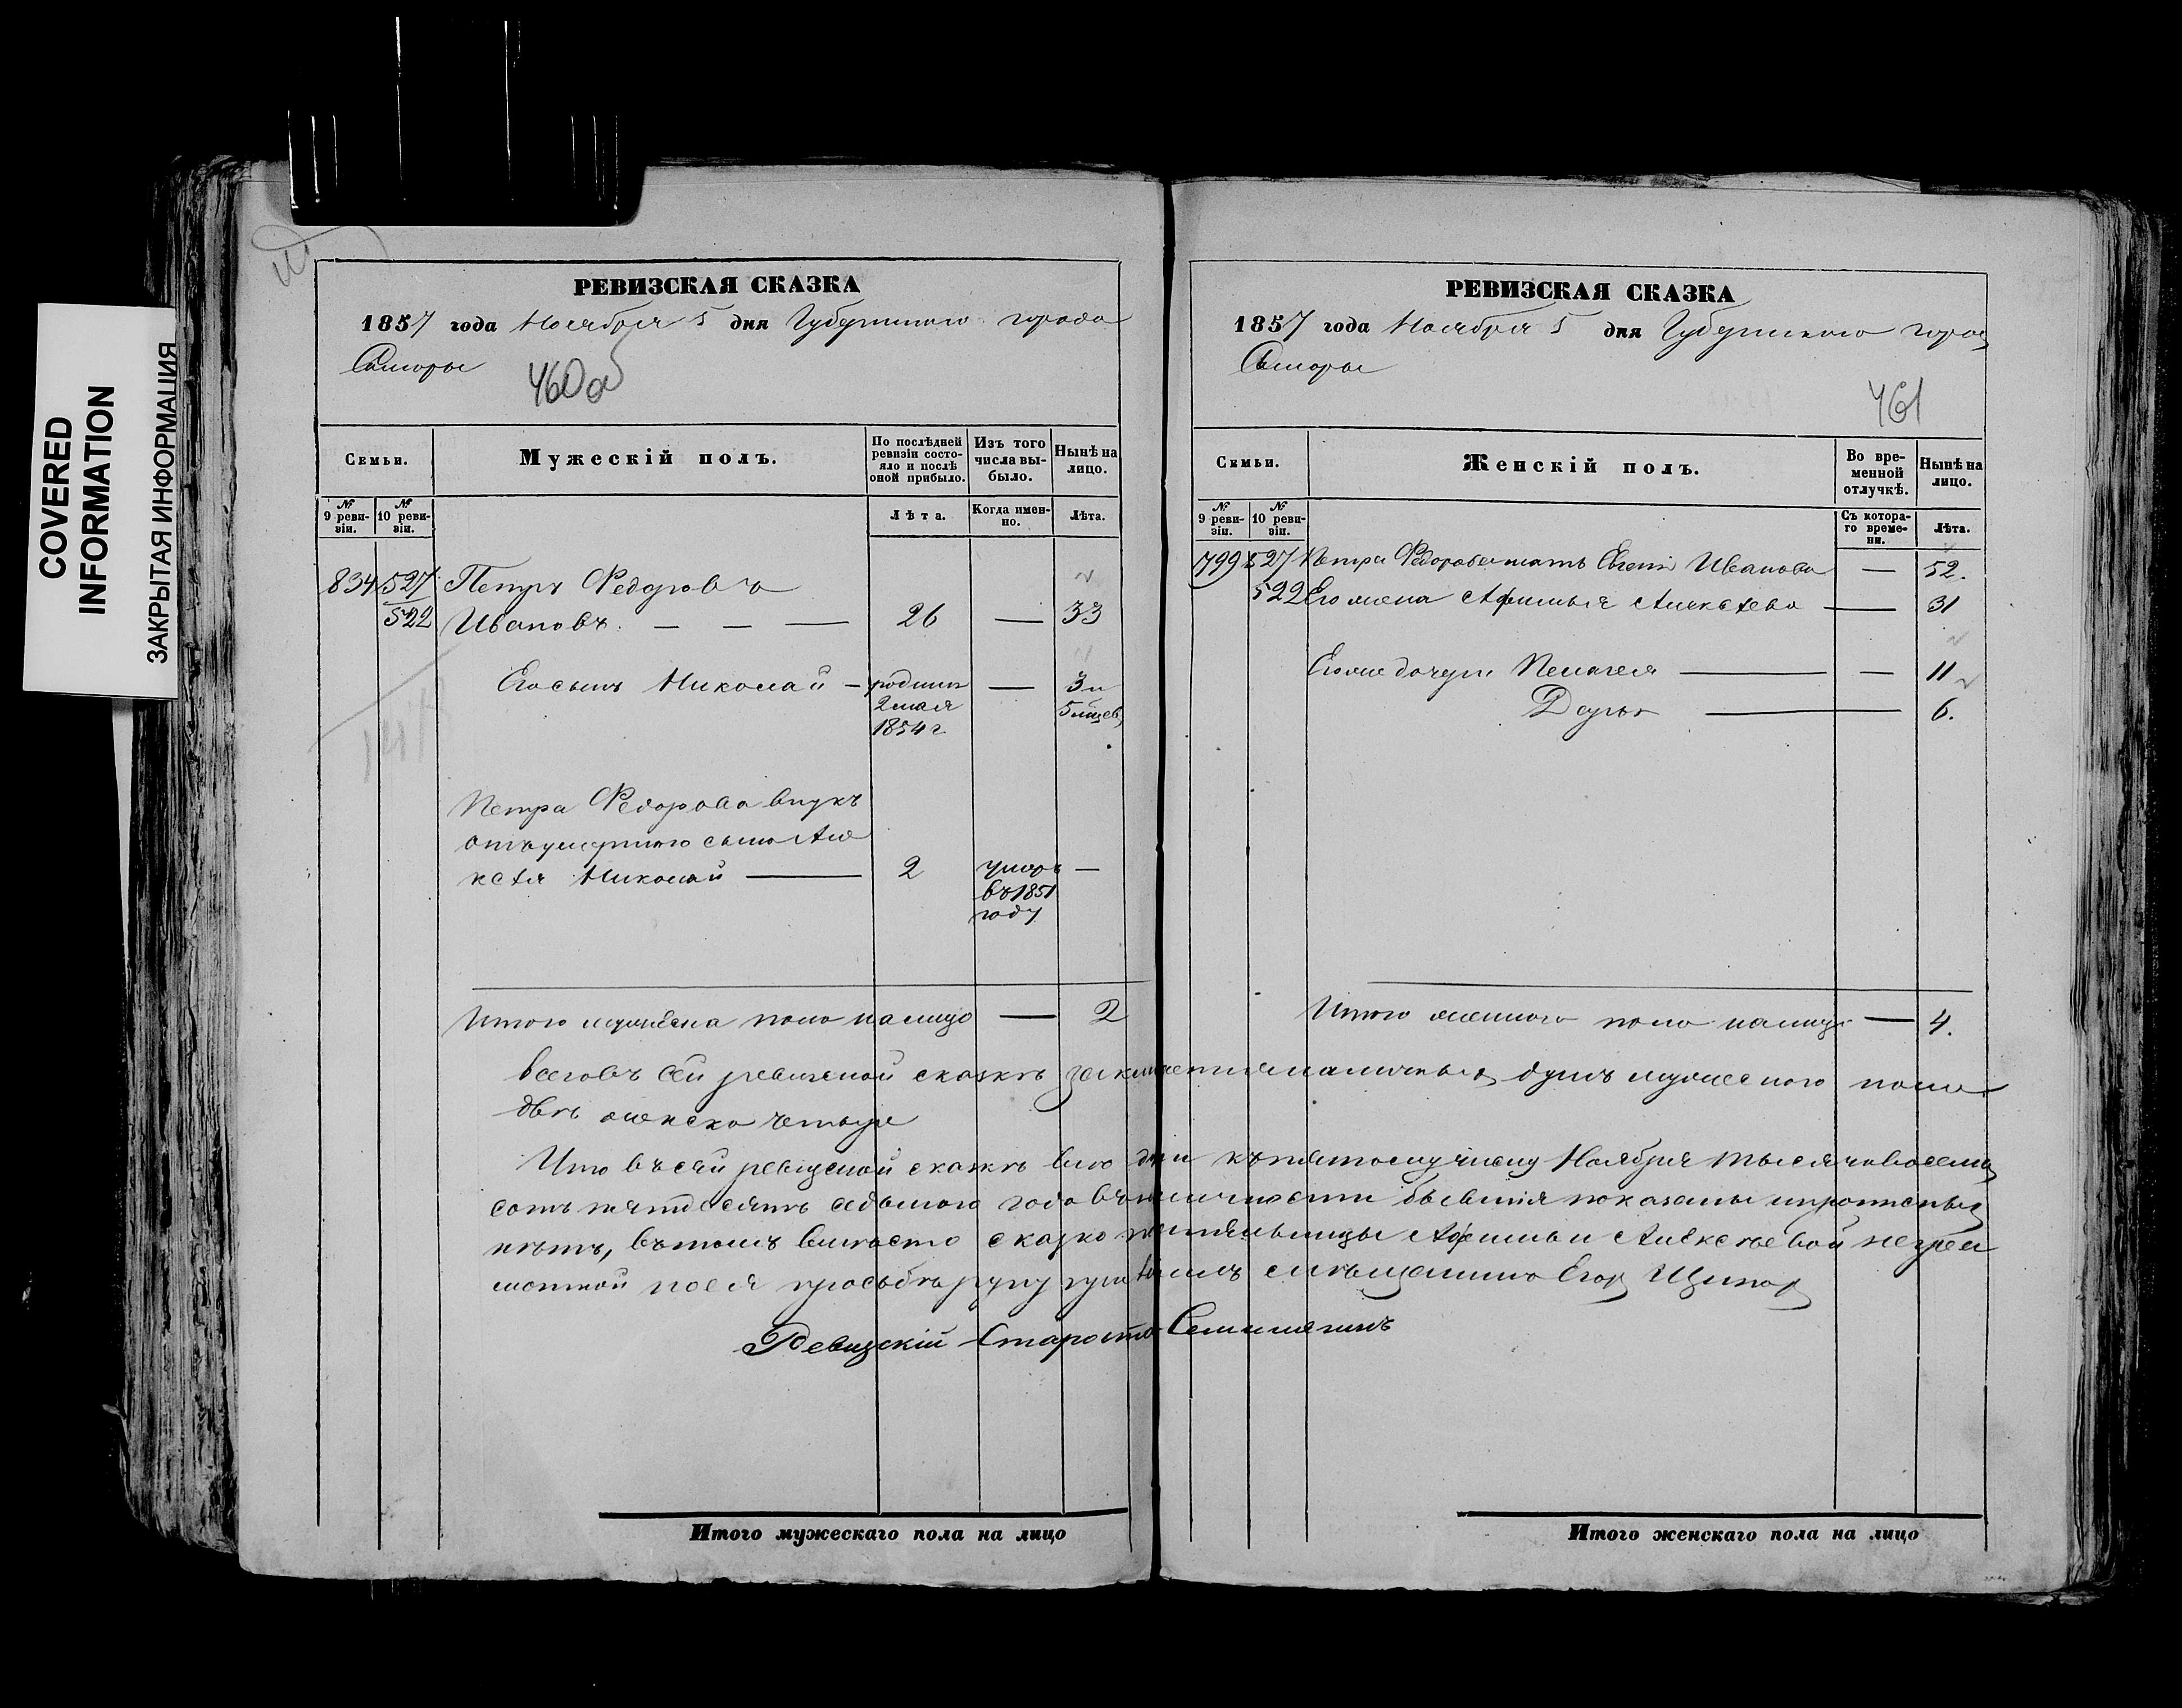 COVERED
INFORMATION
ЗАКРЫТАЯ ИНФОРМАЦИЯ
РЕВИЗСКАЯ СКАЗКА
1857 года Ноября 5 дня Губернскаго города
Самары
460 об
Семьи.
Мужескій полъ.
По послѣдней
ревизіи состо-
яло и послѣ
оной прибыло.
Изъ того
числа вы-
было.
Нынѣ на
лицо.
№
9 реви-
зіи.
№
10 реви-
зіи.
Лѣта.
Когда имен-
но.
Лѣта.
834 527 Петръ Федоровъ
522 Ивановъ. — — — 26 — 33
Его сынъ Николай — родился — 3 и
2 мая 5 мѣсев
1854 г.
Петра Федорова внукъ
отъ умершаго сына Але
ксѣя Николай — 2 умеръ —
въ 1851
году
Итого мужеска пола на лицо — 2
Итого мужескаго пола на лицо
РЕВИЗСКАЯ СКАЗКА
1857 года Ноября 5 дня Губернскаго город
Самары
461
Семьи.
Женскій полъ.
Во вре-
менной
отлучкѣ.
Нынѣ на
лицо.
№
9 реви-
зіи.
№
10 реви-
зіи.
Съ котора-
го време-
ни.
Лѣта.
799 527 Петра Федорова мать Евгенія Иванова — 52.
522 Его жена Афимья Алексѣева — 31
Его же дочери Пелагея — — 11
Дарья — 6.
Итого женскаго пола на лицо — 4.
Всего въ сей ревизской сказкѣ наличныхъ душъ мужескаго пола
двѣ женска четыре
Что въ сей ревизской сказкѣ всѣ къ пятому числу Ноября тысяча восемь
сотъ пятдесятъ седьмого года въ наличности бывшія показаны и прописныхъ
нѣтъ, въ томъ вмѣсто сказкоподательницы Афимьи Алексѣевой неграм
мотной по ея прозьбѣ руку приложилъ мѣщанинъ Егор
Ревизскій Староста
Итого женскаго пола на лицо